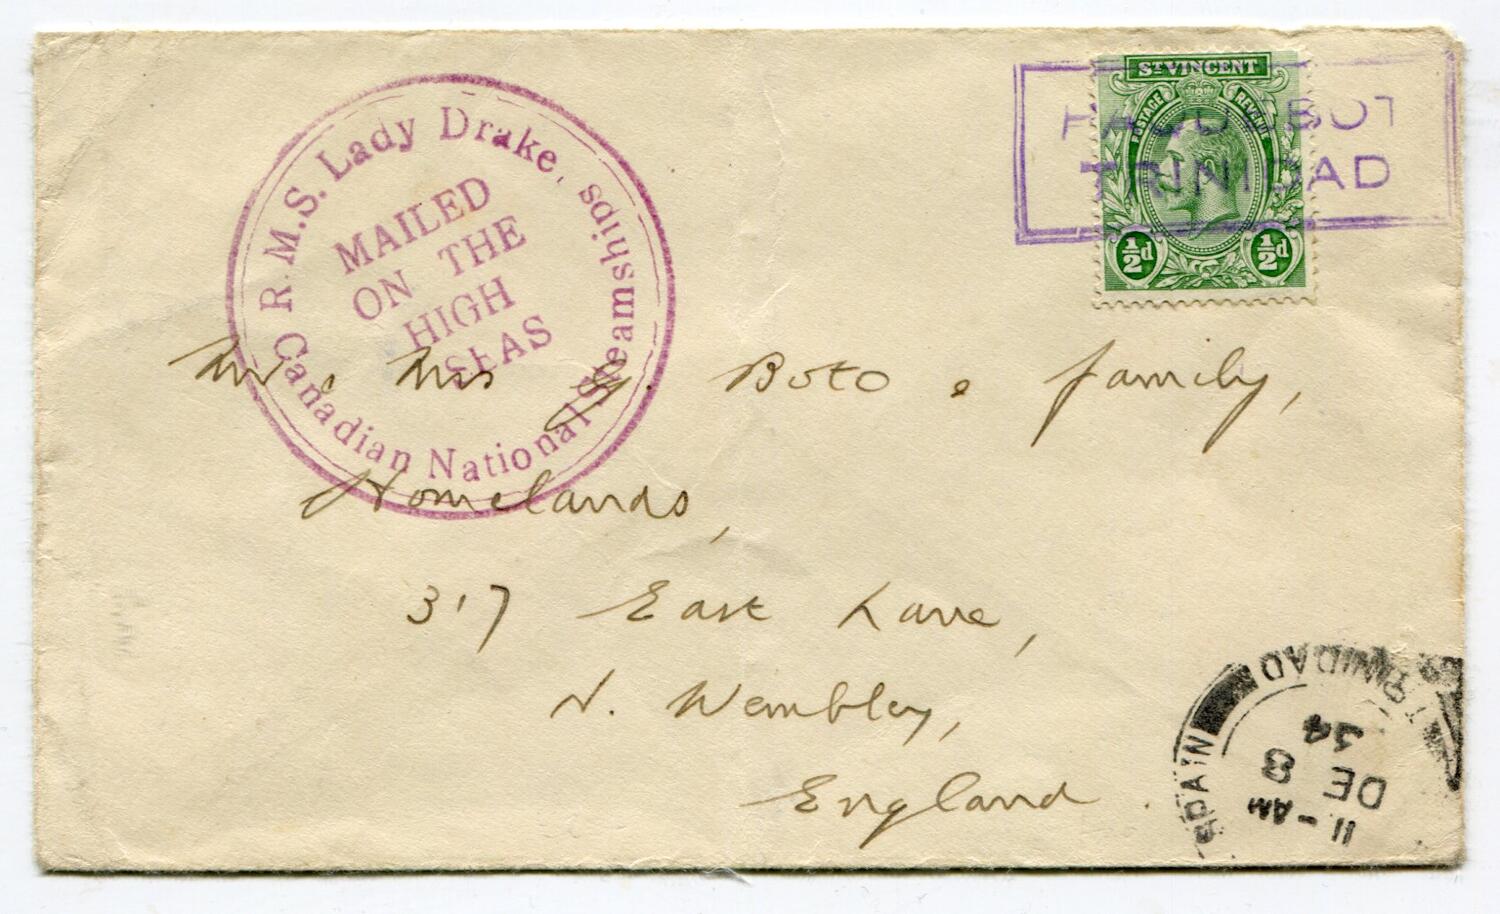 R.M.S. Lady Drake,
Canadian National Steamships
MAILED
ON THE
HIGH
SEAS
ST VINCENT
POSTAGE REVENUE
½d ½d
PAQUEBOT
TRINIDAD
Mr & Mrs G. Boto & family,
Homelands,
317 East Lane,
N. Wembley,
England.
TRINIDAD
11-AM
DE 8
34